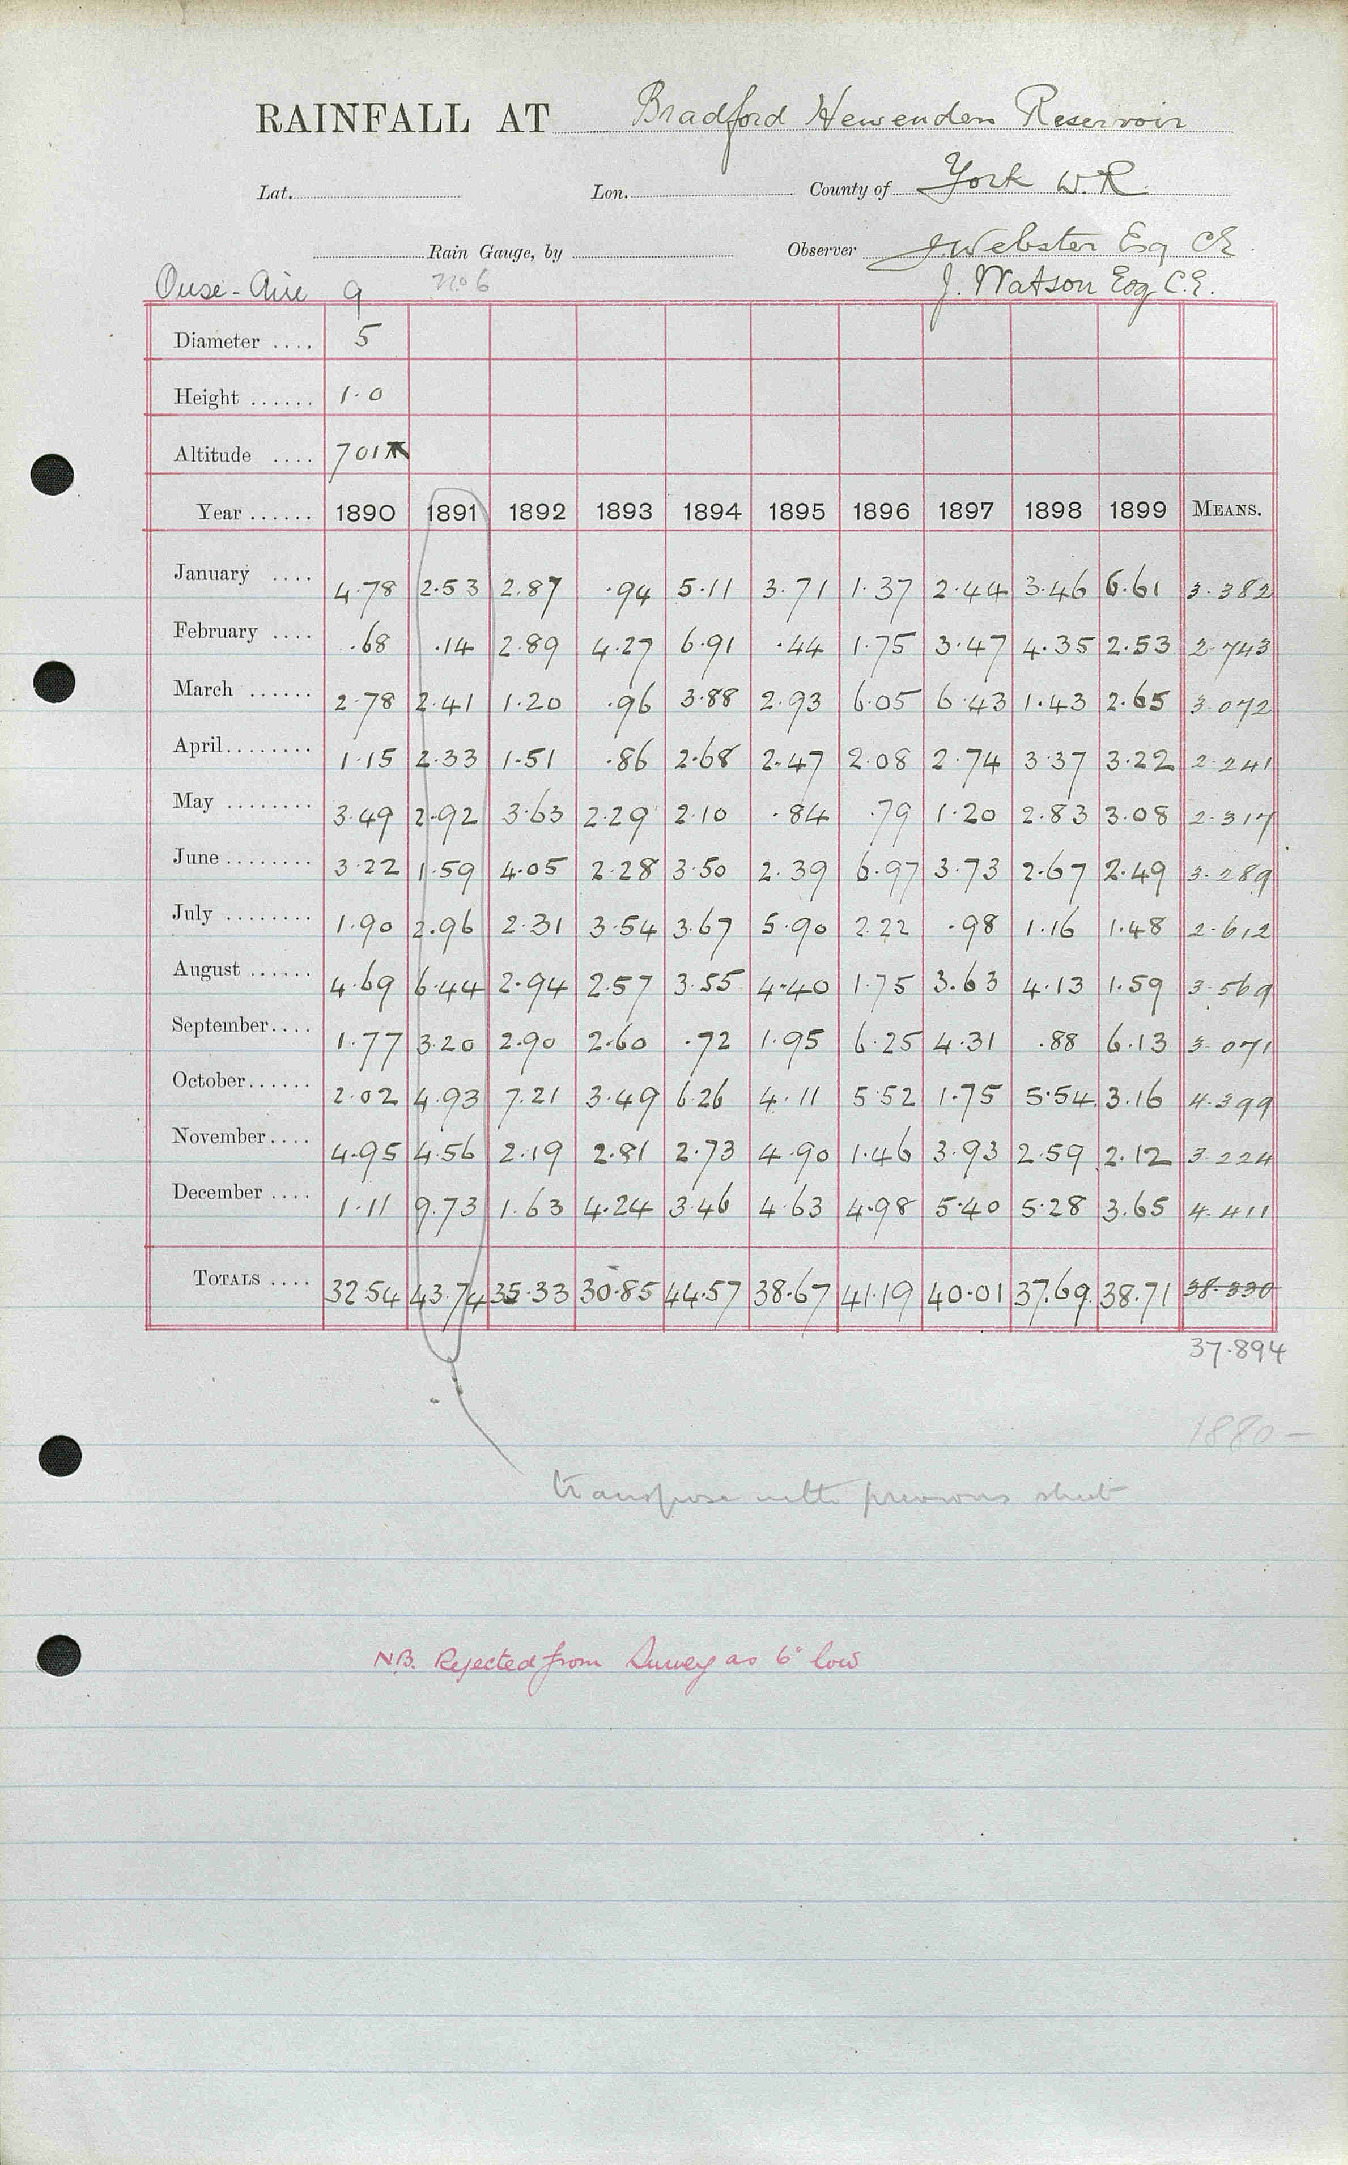 RAINFALL AT Bradford Hewenden Reservoir
Lat. Lon. County of York W.R
Rain Gauge, by Observer J. Webster Esq CE
Ouse-Aire 9 No 6 J. Watson Esq C.E.
Diameter .... 5
Height ...... 1.0
Altitude .... 701
Year ...... 1890 1891 1892 1893 1894 1895 1896 1897 1898 1899 MEANS.
January .... 4.78 2.53 2.87 .94 5.11 3.71 1.37 2.44 3.46 6.61 3.382
February .... .68 .14 2.89 4.27 6.91 .44 1.75 3.47 4.35 2.53 2.743
March ...... 2.78 2.41 1.20 .96 3.88 2.93 6.05 6.43 1.43 2.65 3.072
April........ 1.15 2.33 1.51 .86 2.68 2.47 2.08 2.74 3.37 3.22 2.241
May ........ 3.49 2.92 3.63 2.29 2.10 .84 .79 1.20 2.83 3.08 2.317
June ........ 3.22 1.59 4.05 2.28 3.50 2.39 6.97 3.73 2.67 2.49 3.289
July ........ 1.90 2.96 2.31 3.54 3.67 5.90 2.22 .98 1.16 1.48 2.612
August ...... 4.69 6.44 2.94 2.57 3.55 4.40 1.75 3.63 4.13 1.59 3.569
September.... 1.77 3.20 2.90 2.60 .72 1.95 6.25 4.31 .88 6.13 3.071
October...... 2.02 4.93 7.21 3.49 6.26 4.11 5.52 1.75 5.54 3.16 4.399
November.... 4.95 4.56 2.19 2.81 2.73 4.90 1.46 3.93 2.59 2.12 3.224
December .... 1.11 9.73 1.63 4.24 3.46 4.63 4.98 5.40 5.28 3.65 4.411
TOTALS .... 32.54 43.74 35.33 30.85 44.57 38.67 41.19 40.01 37.69 38.71 38.330
37.894
1880 -
transpose with previous sheet
N.B. Rejected from Survey as 6" low